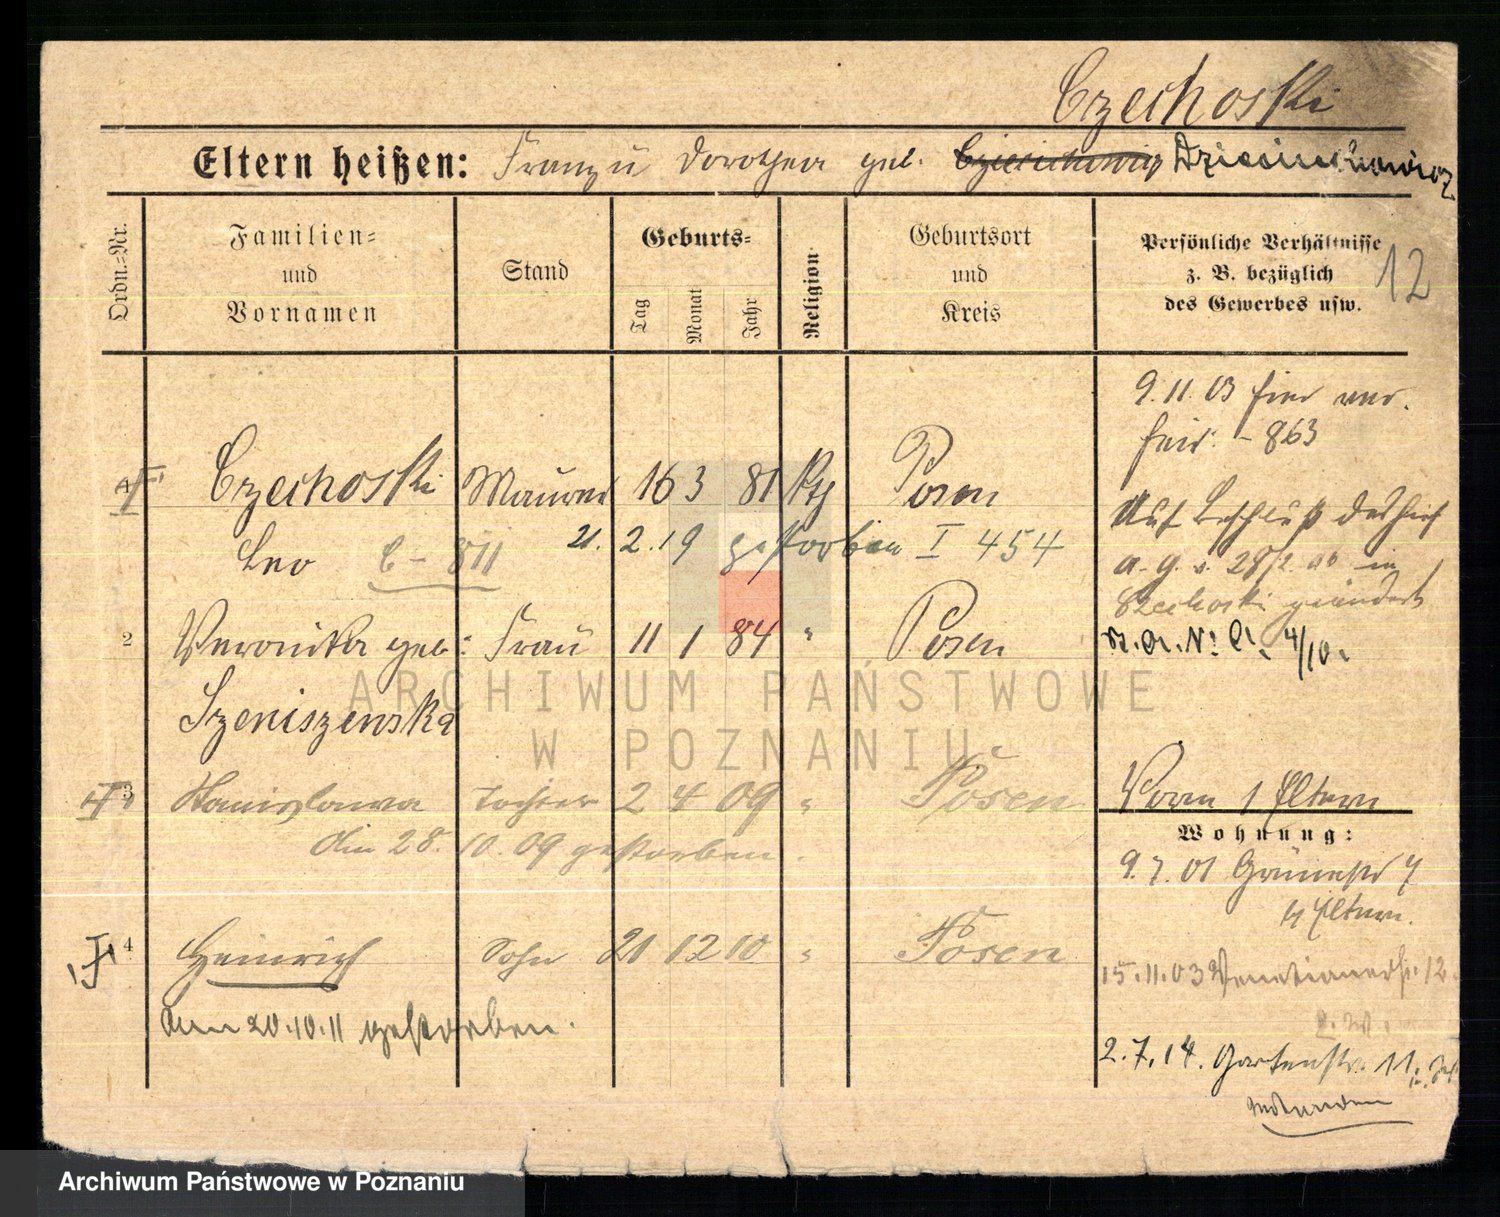 Czechoski
Eltern heißen: Franz u Dorothea geb.
Ordn.-Nr.
Familien-
und
Vornamen
Stand
Geburts-
Tag
Monat
Jahr
Religion
Geburtsort
und
Kreis
Persönliche Verhältnisse
z. B. bezüglich
des Gewerbes usw.
12
9.11.03 hier ver.
heir. - 863
Czechoski Maurer 16 3 81 Kth Posen
Leo C - 811 21. 2. 19 gestorben I 454
Auf Beschluß des hies
a. g. v. 28/2. in
Czechoski geändert
2 Veronika geb: Frau 11 1 84 " Posen
Szeniszewska
ARCHIWUM PAŃSTWOWE
W POZNANIU
3 Stanislawa Tochter 2 4 09 " Posen
den 28. 10. 09 gestorben.
Vorm 1 Eltern
Wohnung:
9.7.01 Grünestr 7
b/ Eltern.
4 Heinrich Sohn 21 12 10 " Posen
am 20.10.11 gestorben.
15.11.03 Venetianerstr. 12
2.7.14. Gartenstr. 11.
Archiwum Państwowe w Poznaniu